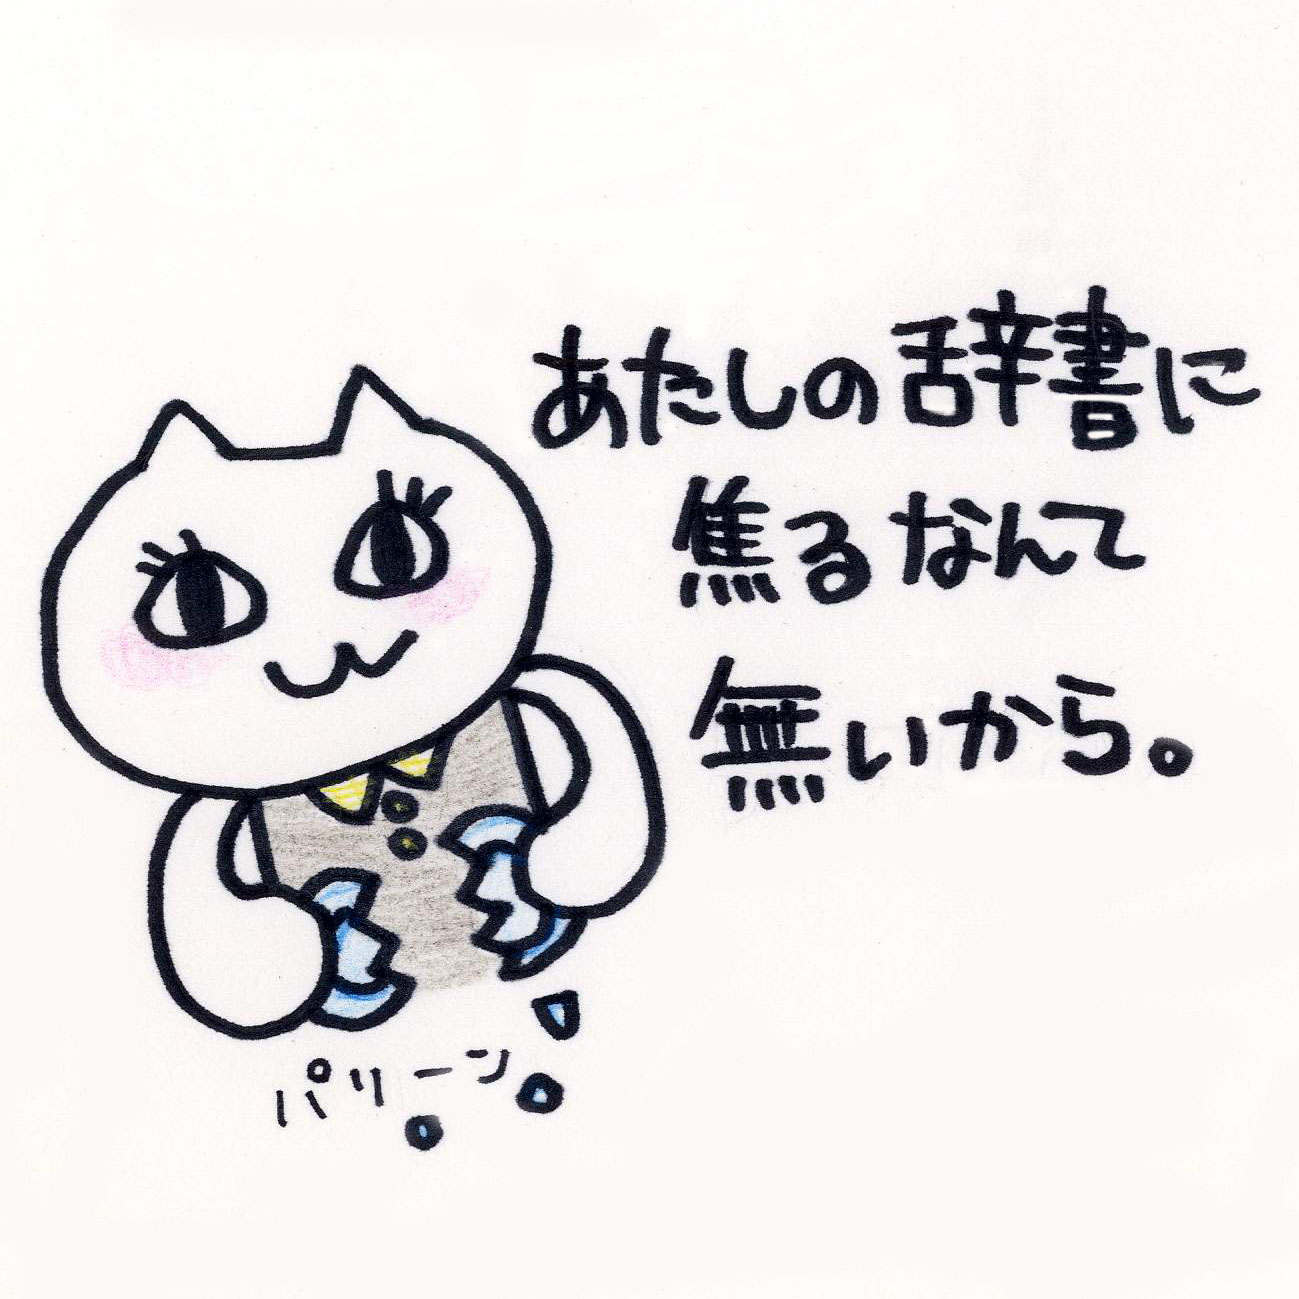 あたしの辞書に
焦るなんて
無いから。
パリーン